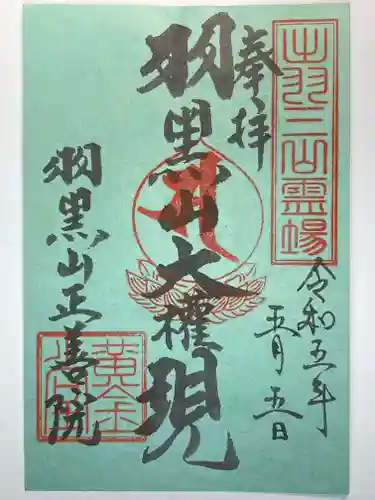 出羽三山霊場
奉拝
令和五年
五月五日
羽黒山大権現
羽黒山正善院
黄金